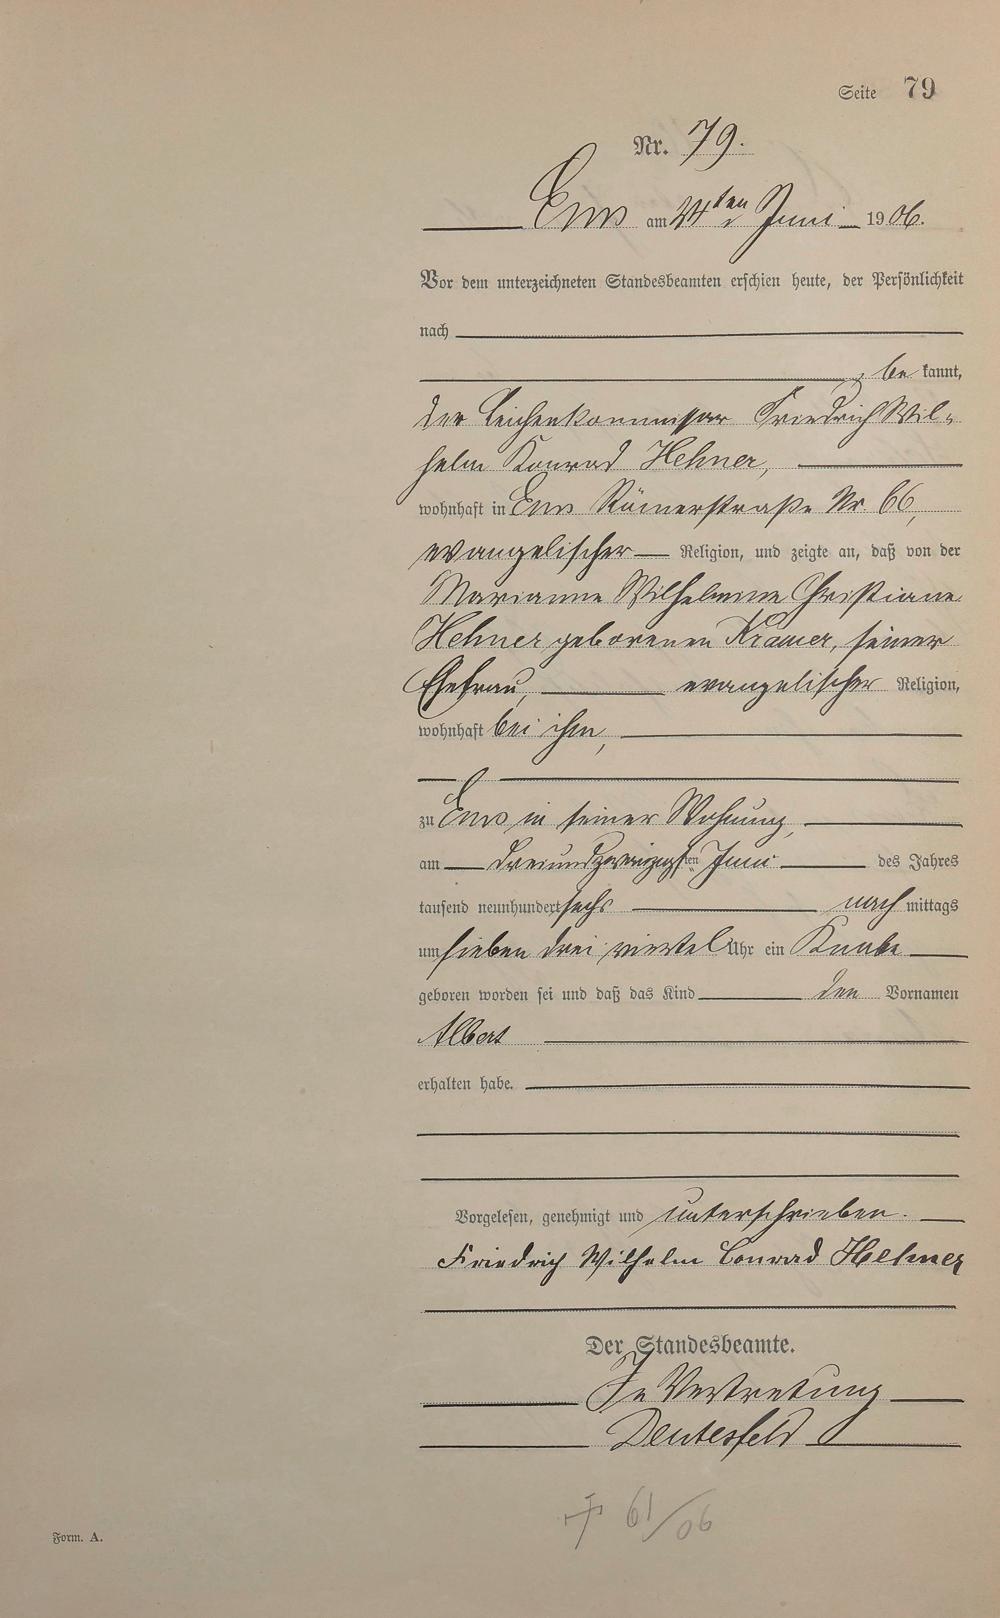 Seite 79
Nr. 79.
Ems am 24ten Juni 1906.
Vor dem unterzeichneten Standesbeamten erschien heute, der Persönlichkeit
nach
be kannt,
der Leichenkommissar Friedrich Wil-
helm Konrad Hehner,
wohnhaft in Ems Römerstraße Nr. 66,
evangelischer Religion, und zeigte an, daß von der
Marianne Wilhelmine Christiane
Hehner geborenen Kramer, seiner
Ehefrau, evangelischer Religion,
wohnhaft bei ihm,
zu Ems in seiner Wohnung,
am dreiundzwanzigsten Juni des Jahres
tausend neunhundert sechs nach mittags
um sieben drei viertel Uhr ein Knabe
geboren worden sei und daß das Kind den Vornamen
Albert
erhalten habe.
Vorgelesen, genehmigt und unterschrieben.
Friedrich Wilhelm Conrad Hehner
Der Standesbeamte.
In Vertretung
Deutesfeld
† 61/06
Form. A.